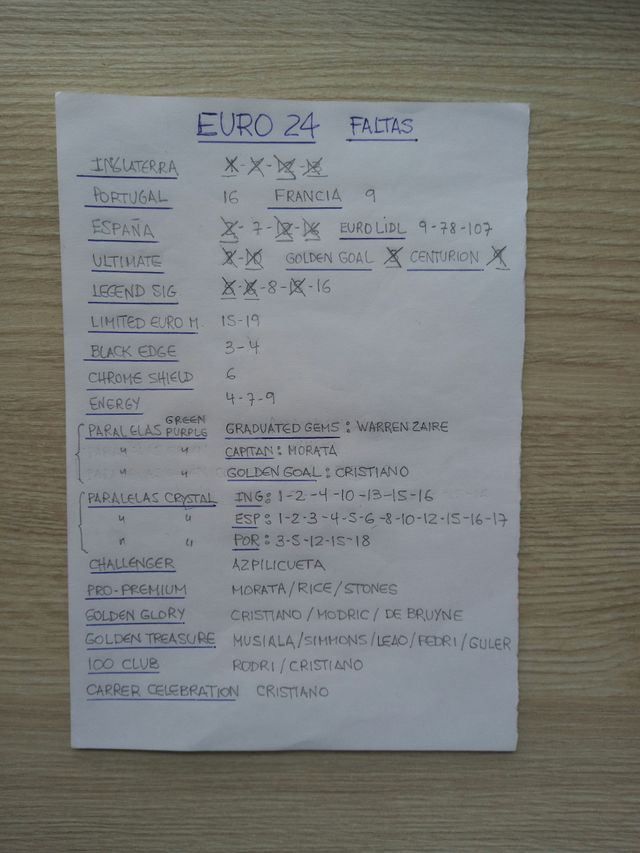 EURO 24 FALTAS
INGLATERRA
PORTUGAL 16 FRANCIA 9
ESPAÑA 7 EURO LIDL 9-78-107
ULTIMATE GOLDEN GOAL CENTURION
LEGEND SIG 8 - -16
LIMITED EURO M. 15-19
BLACK EDGE 3-4
CHROME SHIELD 6
ENERGY 4-7-9
PARALELAS GREEN PURPLE GRADUATED GEMS: WARREN ZAIRE
" " CAPITAN: MORATA
" " GOLDEN GOAL: CRISTIANO
PARALELAS CRYSTAL ING: 1-2-4-10-13-15-16
" " ESP: 1-2-3-4-5-6-8-10-12-15-16-17
" " POR: 3-5-12-15-18
CHALLENGER AZPILICUETA
PRO-PREMIUM MORATA/RICE/STONES
GOLDEN GLORY CRISTIANO/MODRIC/DE BRUYNE
GOLDEN TREASURE MUSIALA/SIMMONS/LEAO/PEDRI/GULER
100 CLUB RODRI/CRISTIANO
CARRER CELEBRATION CRISTIANO